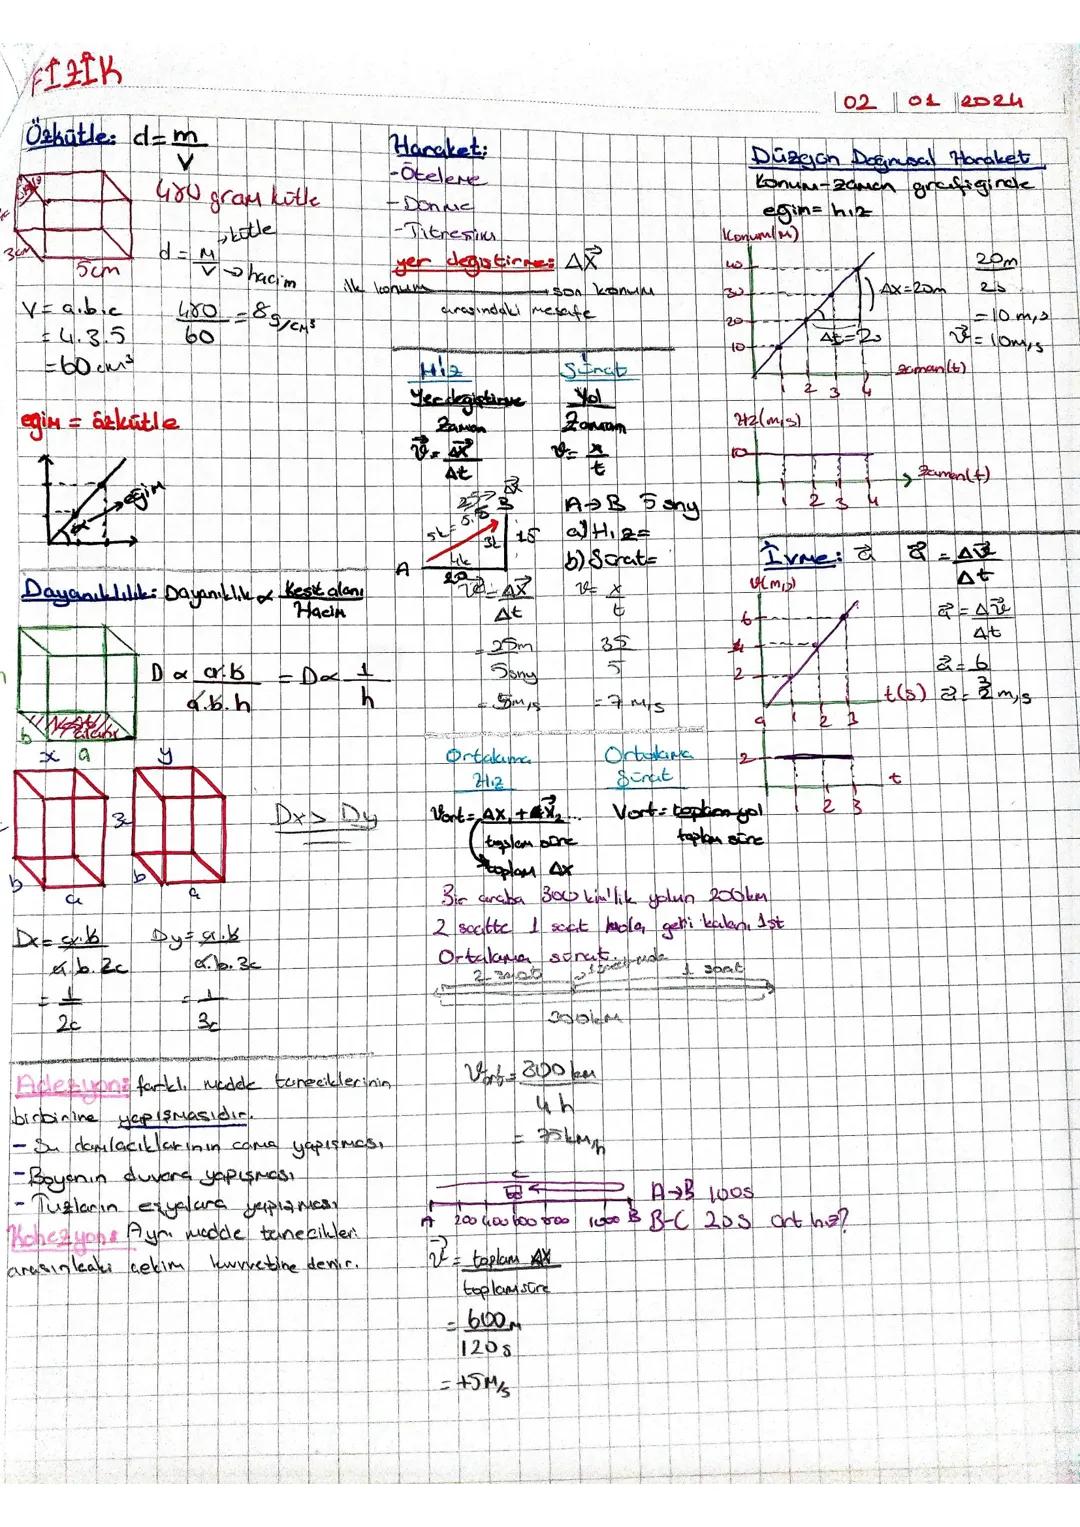 FİZİK
02 01 2024
Özkütle: d = m
V
480 gram kütle
3cm
5cm
d = M → kütle
V → hacim
V = a.b.c
= 4.3.5
= 60 cm³
480 = 8 g/cm³
60
eğim = özkütle
eğim
Dayanıklılık: Dayanıklılık α Kesit alanı
Hacim
D α a.b = D α 1
a.b.h h
Kesit alanı
b a
x y
3c
b a b a
Dx > Dy
Dx = a.b Dy = a.b
a.b.2c a.b.3c
= 1 = 1
2c 3c
Adezyon: farklı madde taneciklerinin
birbirine yapışmasıdır.
- Su damlacıklarının cama yapışması
- Boyanın duvara yapışması
- Tuzların eşyalara yapışması
Kohezyon: Aynı madde tanecikleri
arasındaki çekim kuvvetine denir.
Haraket:
- Öteleme
- Dönme
- Titreşim
yer değiştirme: ΔX
ilk konum son konum
arasındaki mesafe
Hız Sürat
Yer değiştirme Yol
Zaman Zaman
v = ΔX v = x
Δt t
ΔX
25 B
5k = 5.5
3k 15
4k
A 20
A→B 5 sny
a) Hız =
b) Sürat =
v = ΔX v = x
Δt t
= 25m 35
5sny 5
= 5m/s = 7 m/s
Ortalama Ortalama
Hız Sürat
Vort = ΔX₁ + ΔX₂... Vort = toplam yol
toplam süre toplam süre
toplam ΔX
Bir araba 300 km'lik yolun 200km
2 saatte 1 saat mola, geri kalanı 1st
Ortalama sürat.
2 saat 1 saat
300km
Vort = 300 km
4 h
= 75 km/h
C
A 200 400 600 800 1000 B
A→B 100s
B-C 20s ort hız?
v = toplam ΔX
toplam süre
= 600m
120s
= +5M/s
Düzgün Doğrusal Haraket
Konum-zaman grafiğinde
eğim = hız
Konum(M)
40
30
20
10
ΔX=20m
Δt=2s
1 2 3 4
zaman(t)
20m
2s
= 10 m/s
v = 10m/s
Hız(m/s)
10
1 2 3 4
Zaman(t)
İvme: a a = Δv
Δt
v(m/s)
6
4
2
1 2 3
t(s)
a = Δv
Δt
a = 6
3
a = 2 m/s
2
t
1 2 3